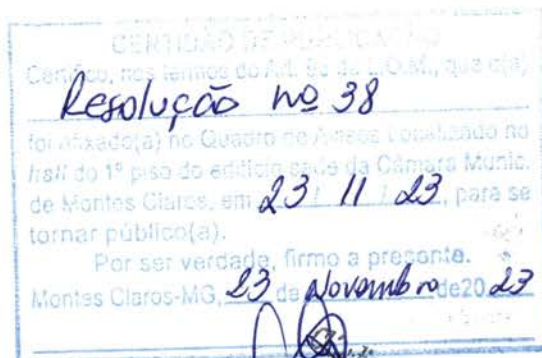 CERTIDÃO DE PUBLICAÇÃO
Certifico, nos termos do Art. 85 da L.O.M., que o(a)
Resolução nº 38
foi afixado(a) no Quadro de Avisos localizado no
hall do 1º piso do edifício sede da Câmara Munic.
de Montes Claros, em 23 / 11 / 23, para se
tornar público(a).
Por ser verdade, firmo a presente.
Montes Claros-MG, 23 de Novembro de 20 23